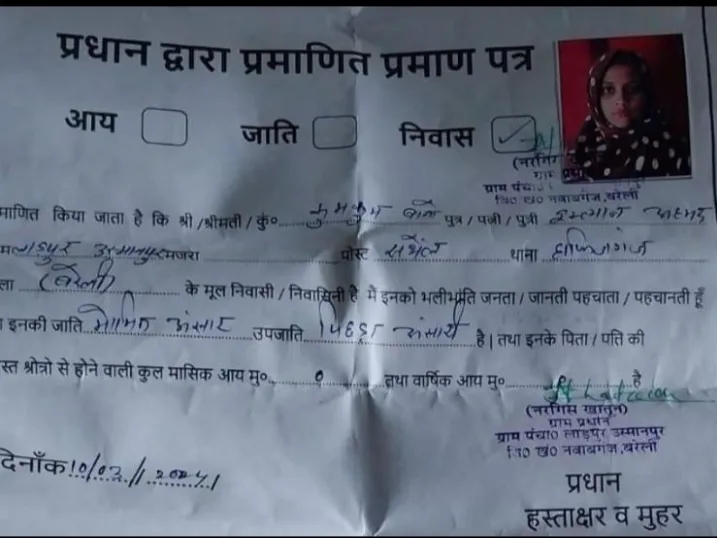 प्रधान द्वारा प्रमाणित प्रमाण पत्र
आय जाति निवास
(नरगिस
ग्राम प्रधा
ग्राम पंचा०
वि० ख० नवाबगंज, बरेली
माणित किया जाता है कि श्री/श्रीमती/कुं० कुमकुम बानो पुत्र / पत्नी / पुत्री अहमद
लाडपुर उस्मानपुर मजरा पोस्ट सथैल थाना हाफिजगंज
ला (बरेली) के मूल निवासी / निवासिनी है मैं इनको भलीभांति जनता / जानती पहचाता / पहचानती हूँ
इनकी जाति मोमिन अंसार उपजाति पिछड़ा अंसारी है | तथा इनके पिता / पति की
स्त श्रोत्रो से होने वाली कुल मासिक आय मु० तथा वार्षिक आय मु० है
(नरगिस खातून)
ग्राम प्रधान
ग्राम पंचा० लाडपुर उस्मानपुर
वि० ख० नवाबगंज, बरेली
दिनाँक 10/03/2024
प्रधान
हस्ताक्षर व मुहर